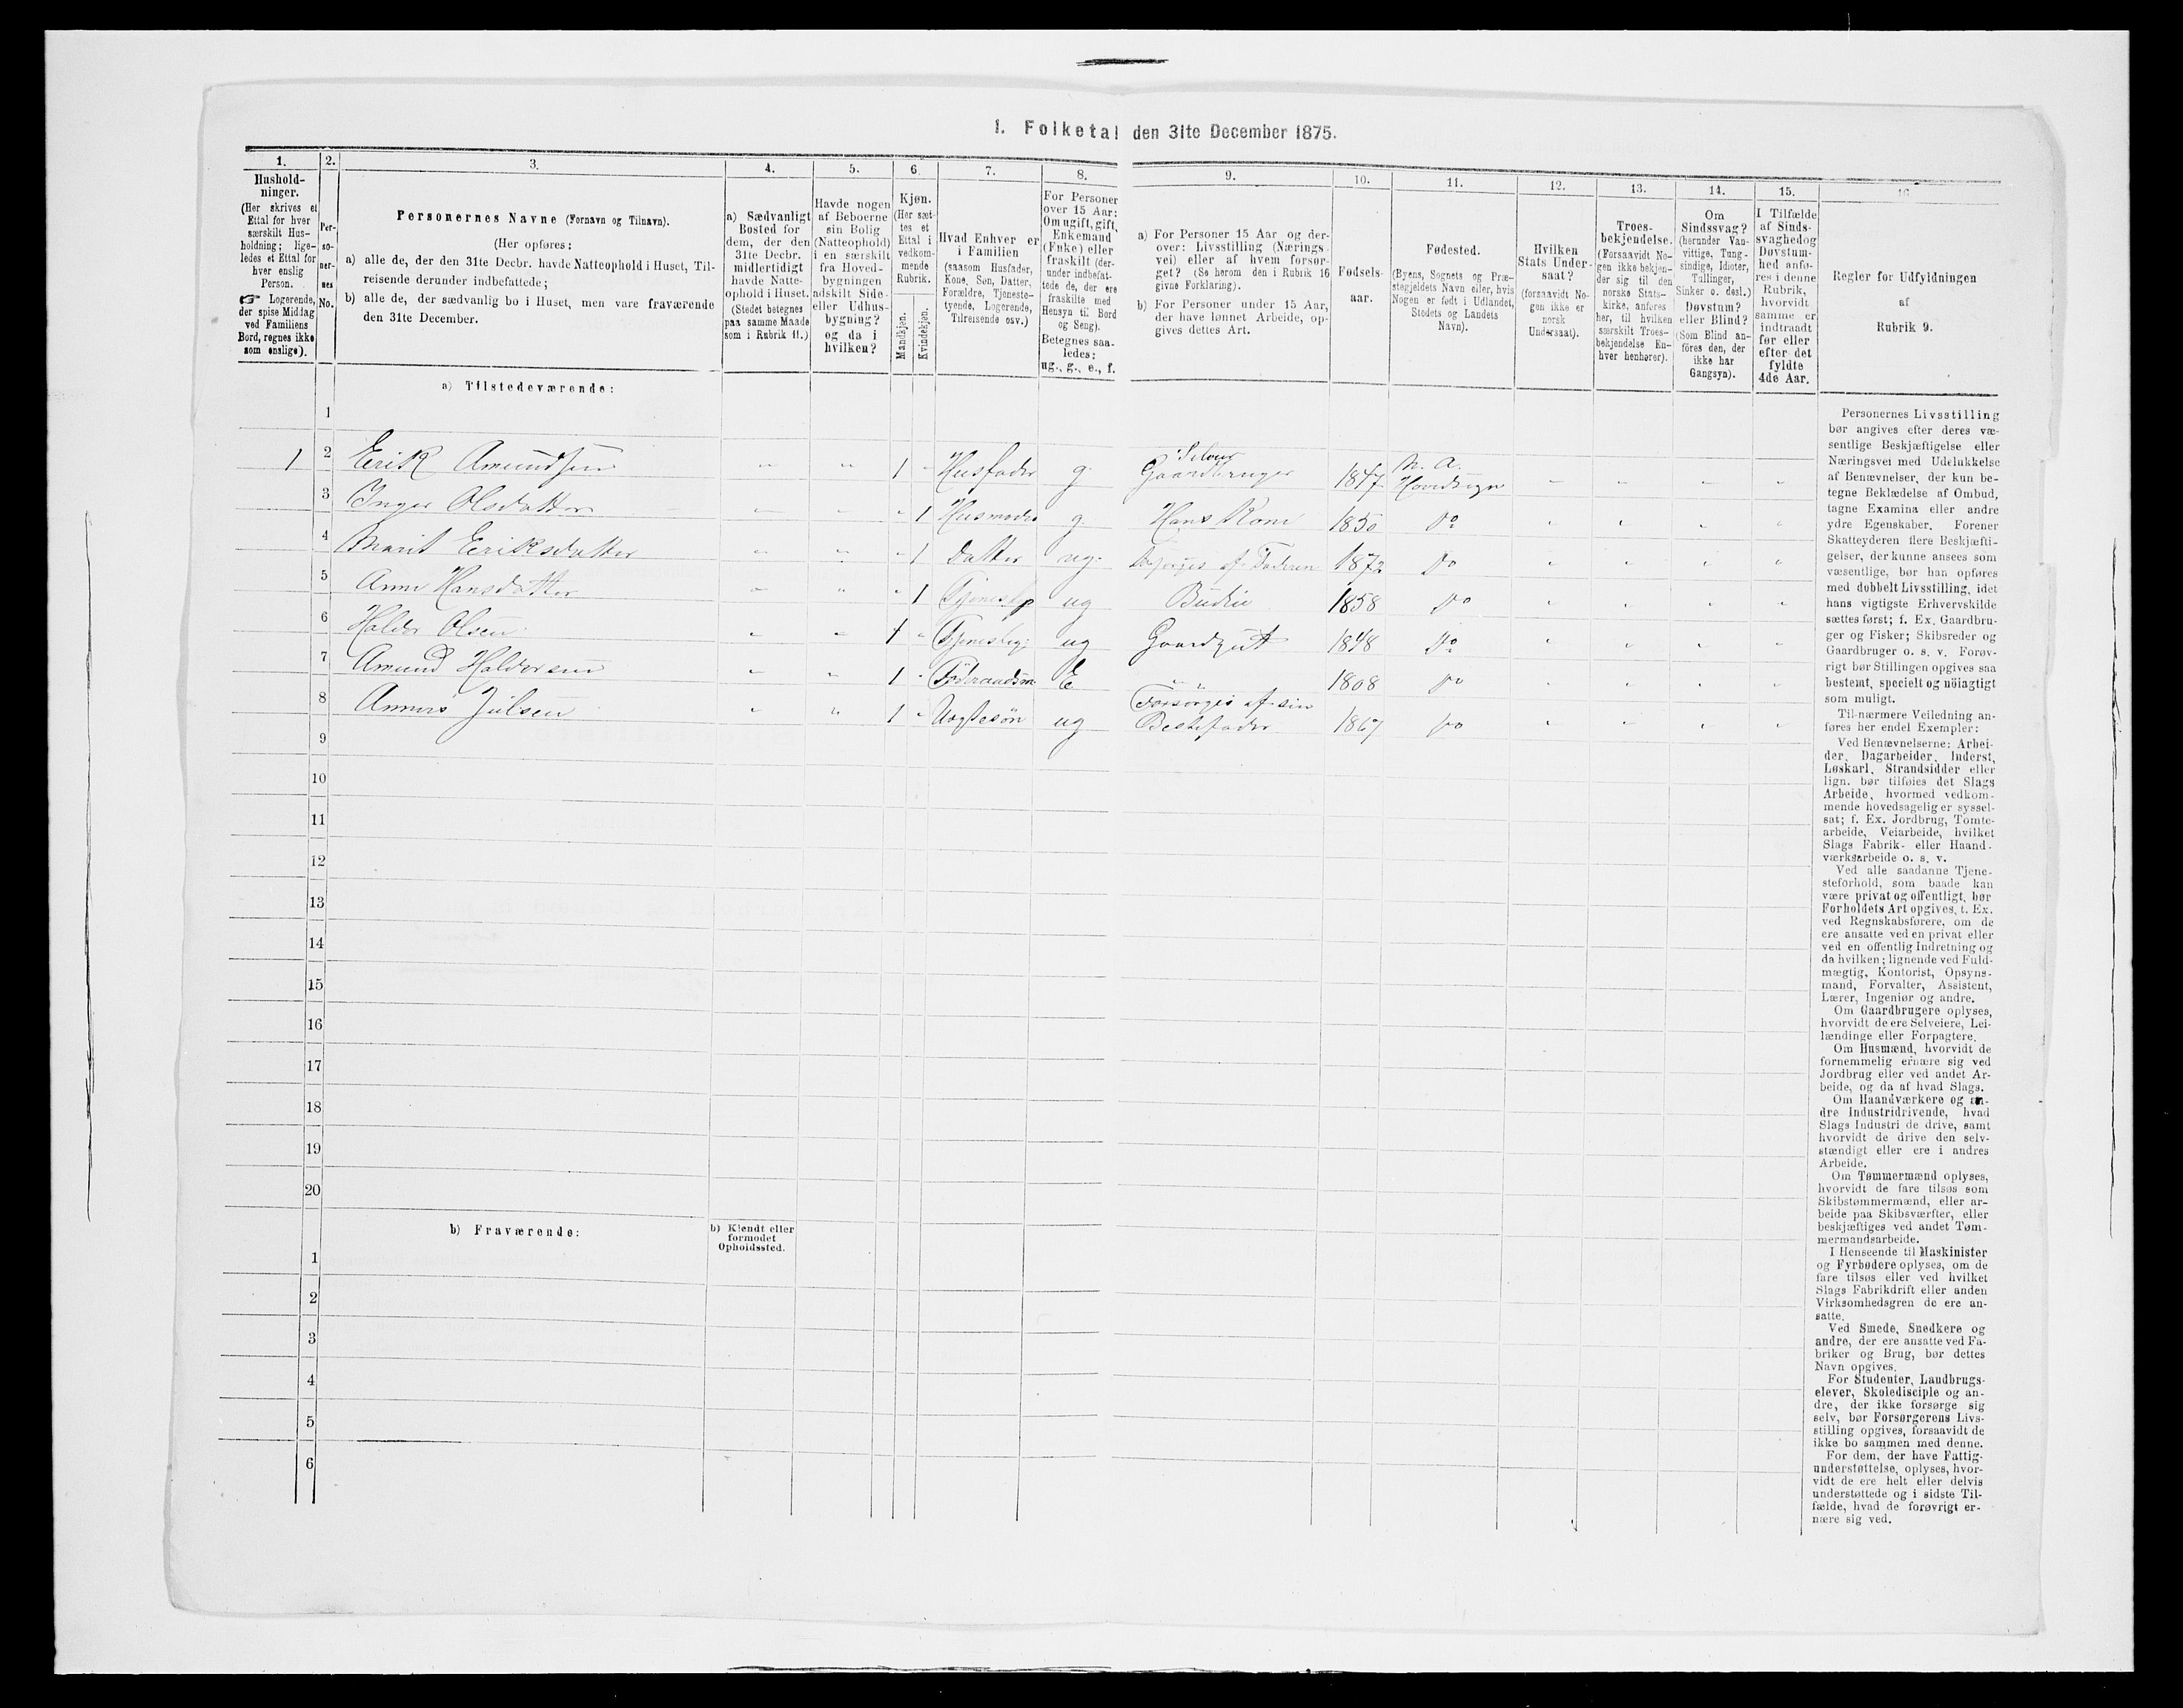 1. Folketal den 31te December 1875.
1.
Hushold-
ninger.
(Her skrives et
Ettal for hver
særskilt Hus-
holdning; lige-
ledes et Ettal for
hver enslig
Person.
☞ Logerende,
der spise Middag
ved Familiens
Bord, regnes ikke
som enslige).
2.
Per-
so-
ner-
nes
No.
3.
Personernes Navne (Fornavn og Tilnavn).
(Her opføres:
a) alle de, der den 31te Decbr. havde Natteophold i Huset, Til-
reisende derunder indbefattede;
b) alle de, der sædvanlig bo i Huset, men vare fraværende
den 31te December.
4.
a) Sædvanligt
Bosted for
dem, der den
31te Decbr.
midlertidigt
havde Natte-
ophold i Huset.
(Stedet betegnes
paa samme Maade
som i Rubrik 11.)
5.
Havde nogen
af Beboerne
sin Bolig
(Natteophold)
i en særskilt
fra Hoved-
bygningen
adskilt Side-
eller Udhus-
bygning?
og da i
hvilken?
6.
Kjøn.
(Her sæt-
tes et
Ettal i
vedkom-
mende
Rubrik.
Mandkjøn.
Kvindekjøn.
7.
Hvad Enhver er
i Familien
(saasom Husfader,
Kone, Søn, Datter,
Forældre, Tjeneste-
tyende, Logerende,
Tilreisende osv.)
8.
For Personer
over 15 Aar:
Om ugift, gift,
Enkemand
(Enke) eller
fraskilt (der-
under indbefat-
tede de, der ere
fraskilte med
Hensyn til Bord
og Seng).
Betegnes saa-
ledes:
ug., g., e., f.
9.
a) For Personer 15 Aar og der-
over: Livsstilling (Nærings-
vei) eller af hvem forsør-
get? (Se herom den i Rubrik 16
givne Forklaring).
b) For Personer under 15 Aar,
der have lønnet Arbeide, op-
gives dettes Art.
10.
Fødsels-
aar.
11.
Fødested.
(Byens, Sognets og Præ-
stegjeldets Navn eller, hvis
Nogen er født i Udlandet,
Stedets og Landets
Navn).
12.
Hvilken
Stats Under-
saat?
(forsaavidt No-
gen ikke er
norsk
Undersaat).
13.
Troes-
bekjendelse.
(Forsaavidt No-
gen ikke bekjen-
der sig til den
norske Stats-
kirke, anføres
her, til hvilken
særskilt Troes-
bekjendelse En-
hver henhører).
14.
Om
Sindssvag?
(herunder Van-
vittige, Tung-
sindige, Idioter,
Tullinger,
Sinker o. desl.)
Døvstum?
eller Blind?
(Som Blind an-
føres den, der
ikke har
Gangsyn).
15.
I Tilfælde
af Sinds-
svaghed og
Døvstum-
hed anfø-
res i denne
Rubrik,
hvorvidt
samme er
indtraadt
før eller
efter det
fyldte
4de Aar.
16
Regler for Udfyldningen
af
Rubrik 9.
a) Tilstedeværende:
1
1 2 Erik Amundsen " " 1 " Husfader g. Selveier Gaardbruger 1847 N. A. Hovedsogn " " " "
3 Inger Olsdatter " " " 1 Husmoder g. Hans Kone 1850 Do " " " "
4 Marit Eriksdatter " " " 1 Datter ug. Forsørges af Faderen 1872 Do " " " "
5 Anne Hansdatter " " " 1 ug Budeie 1858 Do " " " "
6 Haldor Olsen " " 1 " ug Gaardgut 1848 Do " " " "
7 Amund Haldorsen " " 1 " Föderaadsm E " 1808 Do " " " "
8 Anders Julsen " " 1 " ug Forsörges af sin Bestefader 1867 Do " " " "
9
10
11
12
13
14
15
16
17
18
19
20
b) Fraværende:
b) Kjendt eller
formodet
Opholdssted.
1
2
3
4
5
6
Personernes Livsstilling
bør angives efter deres væ-
sentlige Beskjæftigelse eller
Næringsvei med Udelukkelse
af Benævnelser, der kun be-
tegne Beklædelse af Ombud,
tagne Examina eller andre
ydre Egenskaber. Forener
Skatteyderen flere Beskjæfti-
gelser, der kunne ansees som
væsentlige, bør han opføres
med dobbelt Livsstilling, idet
hans vigtigste Erhvervskilde
sættes først; f. Ex. Gaardbru-
ger og Fisker; Skibsreder og
Gaardbruger o. s. v. Forøv-
rigt bør Stillingen opgives saa
bestemt, specielt og nöiagtigt
som muligt.
Til nærmere Veiledning an-
føres her endel Exempler:
Ved Benævnelserne: Arbei-
der, Dagarbeider, Inderst,
Løskarl, Strandsidder eller
lign. bør tilføies det Slags
Arbeide, hvormed vedkom-
mende hovedsagelig er syssel-
sat; f. Ex. Jordbrug, Tomte-
arbeide, Veiarbeide, hvilket
Slags Fabrik- eller Haand-
værksarbeide o. s. v.
Ved alle saadanne Tjene-
steforhold, som baade kan
være privat og offentligt, bør
Forholdets Art opgives, t. Ex.
ved Regnskabsførere, om de
ere ansatte ved en privat eller
ved en offentlig Indretning og
da hvilken; lignende ved Fuld-
mægtig, Kontorist, Opsyns-
mand, Forvalter, Assistent,
Lærer, Ingeniør og andre.
Om Gaardbrugere oplyses,
hvorvidt de ere Selveiere, Lei-
lændinge eller Forpagtere.
Om Husmænd, hvorvidt de
fornemmelig ernære sig ved
Jordbrug eller ved andet Ar-
beide, og da af hvad Slags.
Om Haandværkere og an-
dre Industridrivende, hvad
Slags Industri de drive, samt
hvorvidt de drive den selv-
stændigt eller ere i andres
Arbeide.
Om Tømmermænd oplyses,
hvorvidt de fare tilsøs som
Skibstømmermænd, eller ar-
beide paa Skibsværfter, eller
beskjæftiges ved andet Tøm-
mermandsarbeide.
I Henseende til Maskinister
og Fyrbødere oplyses, om de
fare tilsøs eller ved hvilket
Slags Fabrikdrift eller anden
Virksomhedsgren de ere an-
satte.
Ved Smede, Snedkere og
andre, der ere ansatte ved Fa-
briker og Brug, bør dettes
Navn opgives.
For Studenter, Landbrugs-
elever, Skoledisciple og an-
dre, der ikke forsørge sig
selv, bør Forsørgerens Livs-
stilling opgives, forsaavidt de
ikke bo sammen med denne.
For dem, der have Fattig-
understøttelse, oplyses, hvor-
vidt de ere helt eller delvis
understøttede og i sidste Til-
fælde, hvad de forøvrigt er-
nære sig ved.